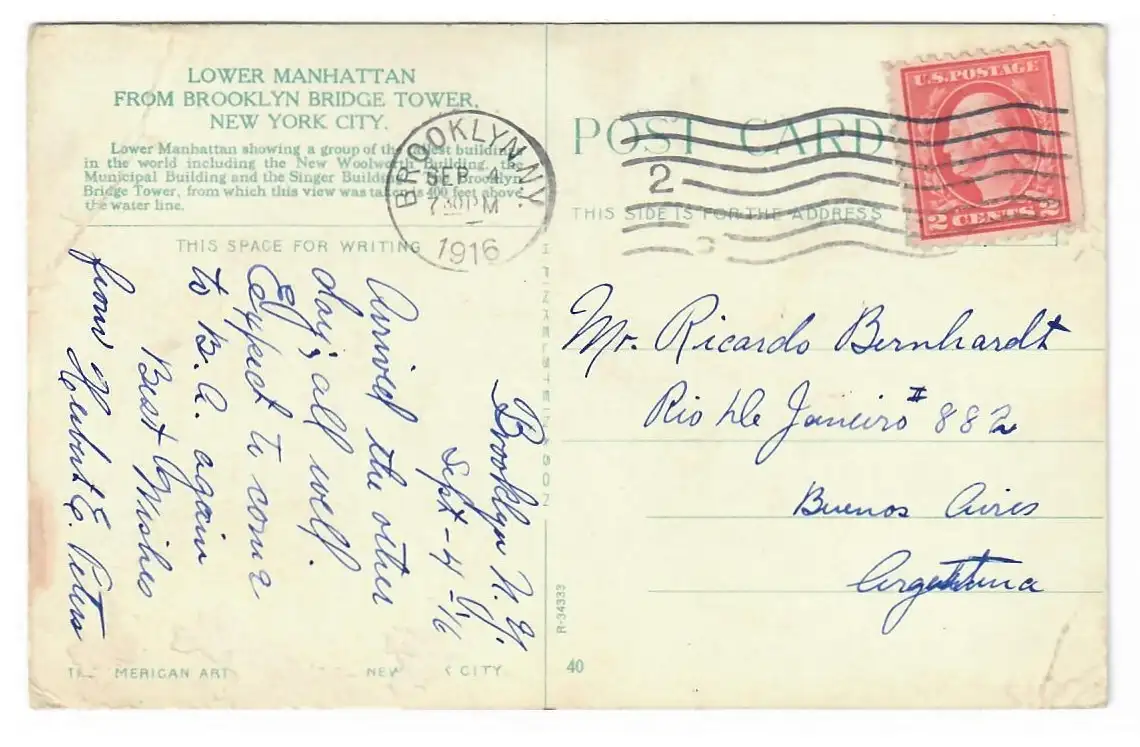 LOWER MANHATTAN
FROM BROOKLYN BRIDGE TOWER,
NEW YORK CITY.
Lower Manhattan showing a group of the tallest buildings
in the world including the New Woolworth Building, the
Municipal Building and the Singer Building. Brooklyn
Bridge Tower, from which this view was taken is 400 feet above
the water line.
THIS SPACE FOR WRITING
BROOKLYN, N.Y.
SEP 4
7 30 PM
1916
2
POST CARD
THIS SIDE IS FOR THE ADDRESS
U.S. POSTAGE
2 CENTS 2
Brooklyn N.Y.
Sept-4-16
Arrived the other
day; all well.
Expect to come
to B.A. again
Best Wishes
from Herbert E. Peters
Mr. Ricardo Bernhardt
Rio de Janeiro # 882
Buenos Aires
Argentina
I. FINKELSTEIN & SON
R-34333
40
MERICAN ART
NEW
CITY